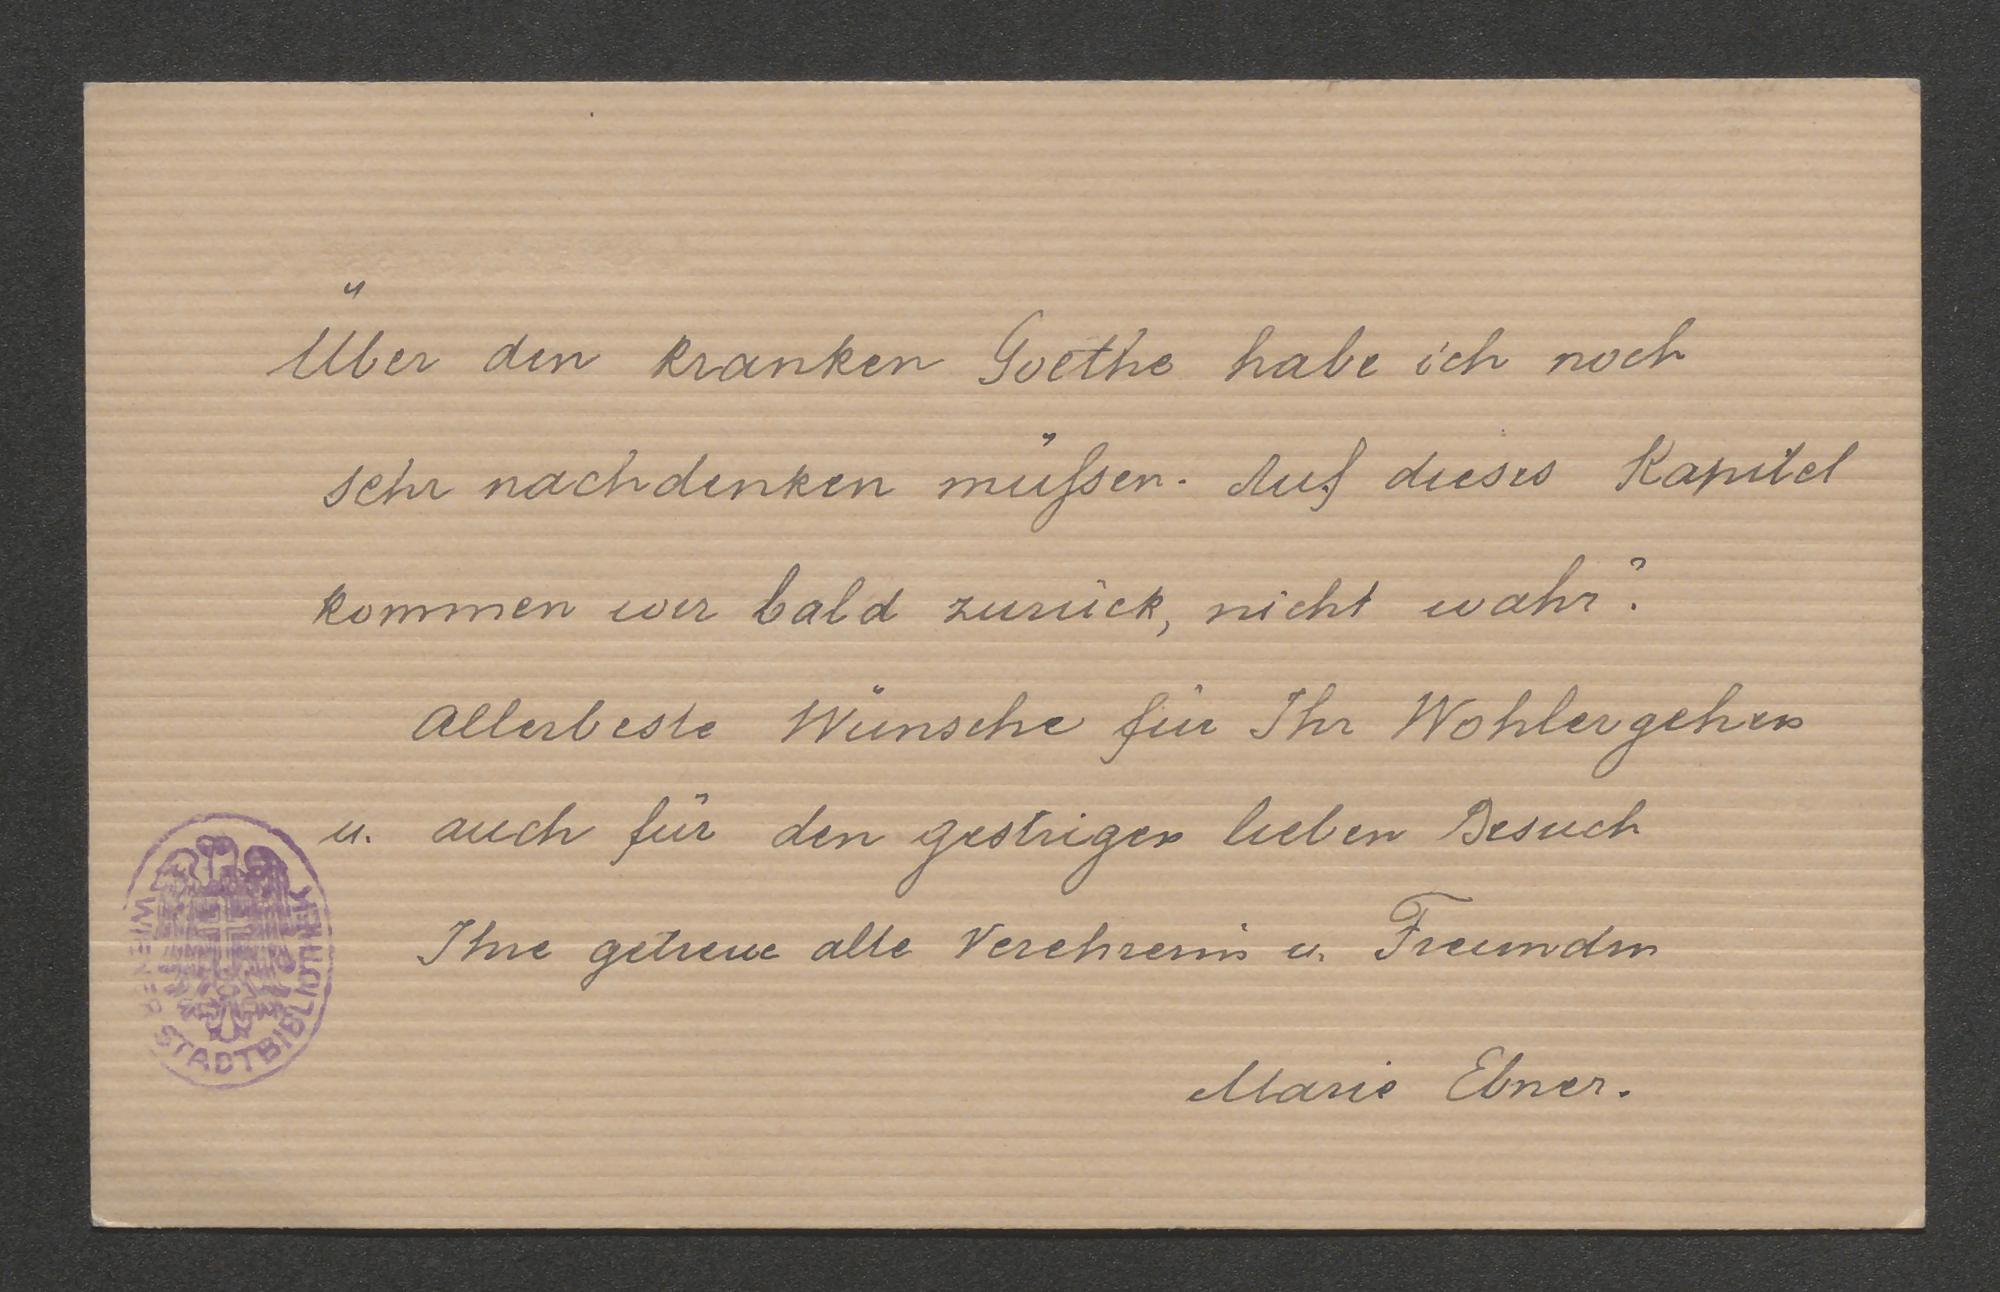 Über den kranken Goethe habe ich noch
sehr nachdenken müſsen. Auf dieses Kapitel
kommen wir bald zurück, nicht wahr?
Allerbeste Wünsche für Ihr Wohlergehen
u. auch für den gestrigen lieben Besuch
Ihre getreue alte Verehrerin u. Freundin
Marie Ebner.
WIENER STADTBIBLIOTHEK